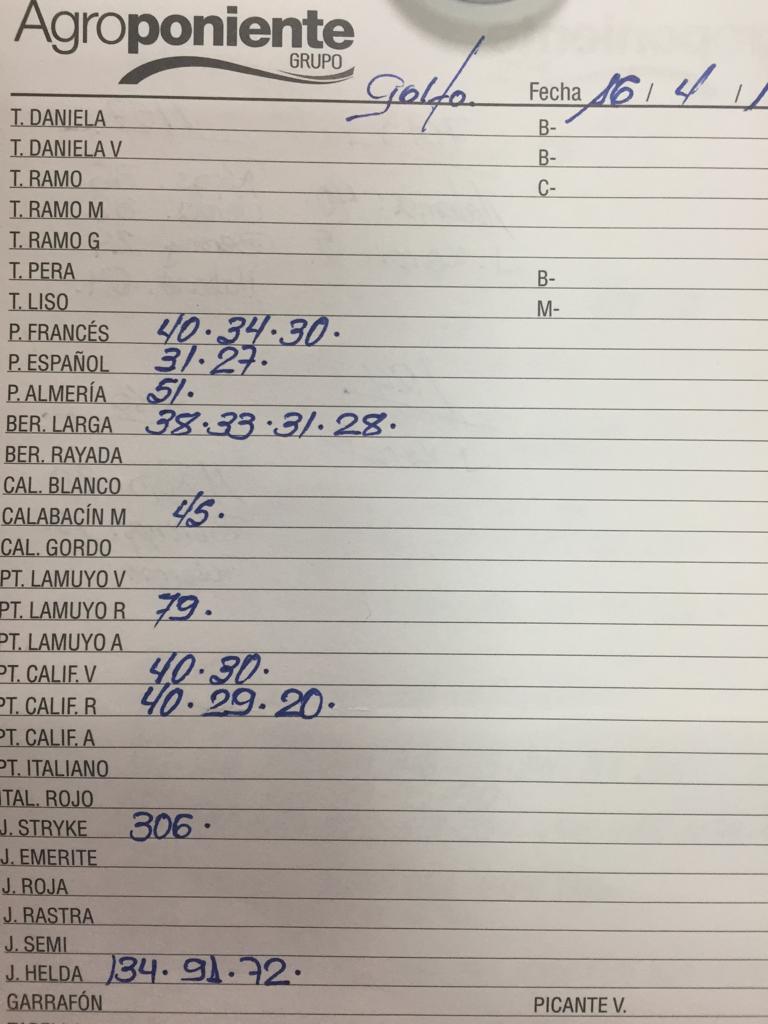 Agroponiente
GRUPO
Golfo. Fecha 16 / 4 / 1
T. DANIELA B-
T. DANIELA V B-
T. RAMO C-
T. RAMO M
T. RAMO G
T. PERA B-
T. LISO M-
P. FRANCÉS 40. 34. 30.
P. ESPAÑOL 31. 27.
P. ALMERÍA 51.
BER. LARGA 38. 33. 31. 28.
BER. RAYADA
CAL. BLANCO
CALABACÍN M 45.
CAL. GORDO
PT. LAMUYO V
PT. LAMUYO R 79.
PT. LAMUYO A
PT. CALIF. V 40. 30.
PT. CALIF. R 40. 29. 20.
PT. CALIF. A
PT. ITALIANO
ITAL. ROJO
J. STRYKE 306.
J. EMERITE
J. ROJA
J. RASTRA
J. SEMI
J. HELDA 134. 91. 72.
GARRAFÓN PICANTE V.